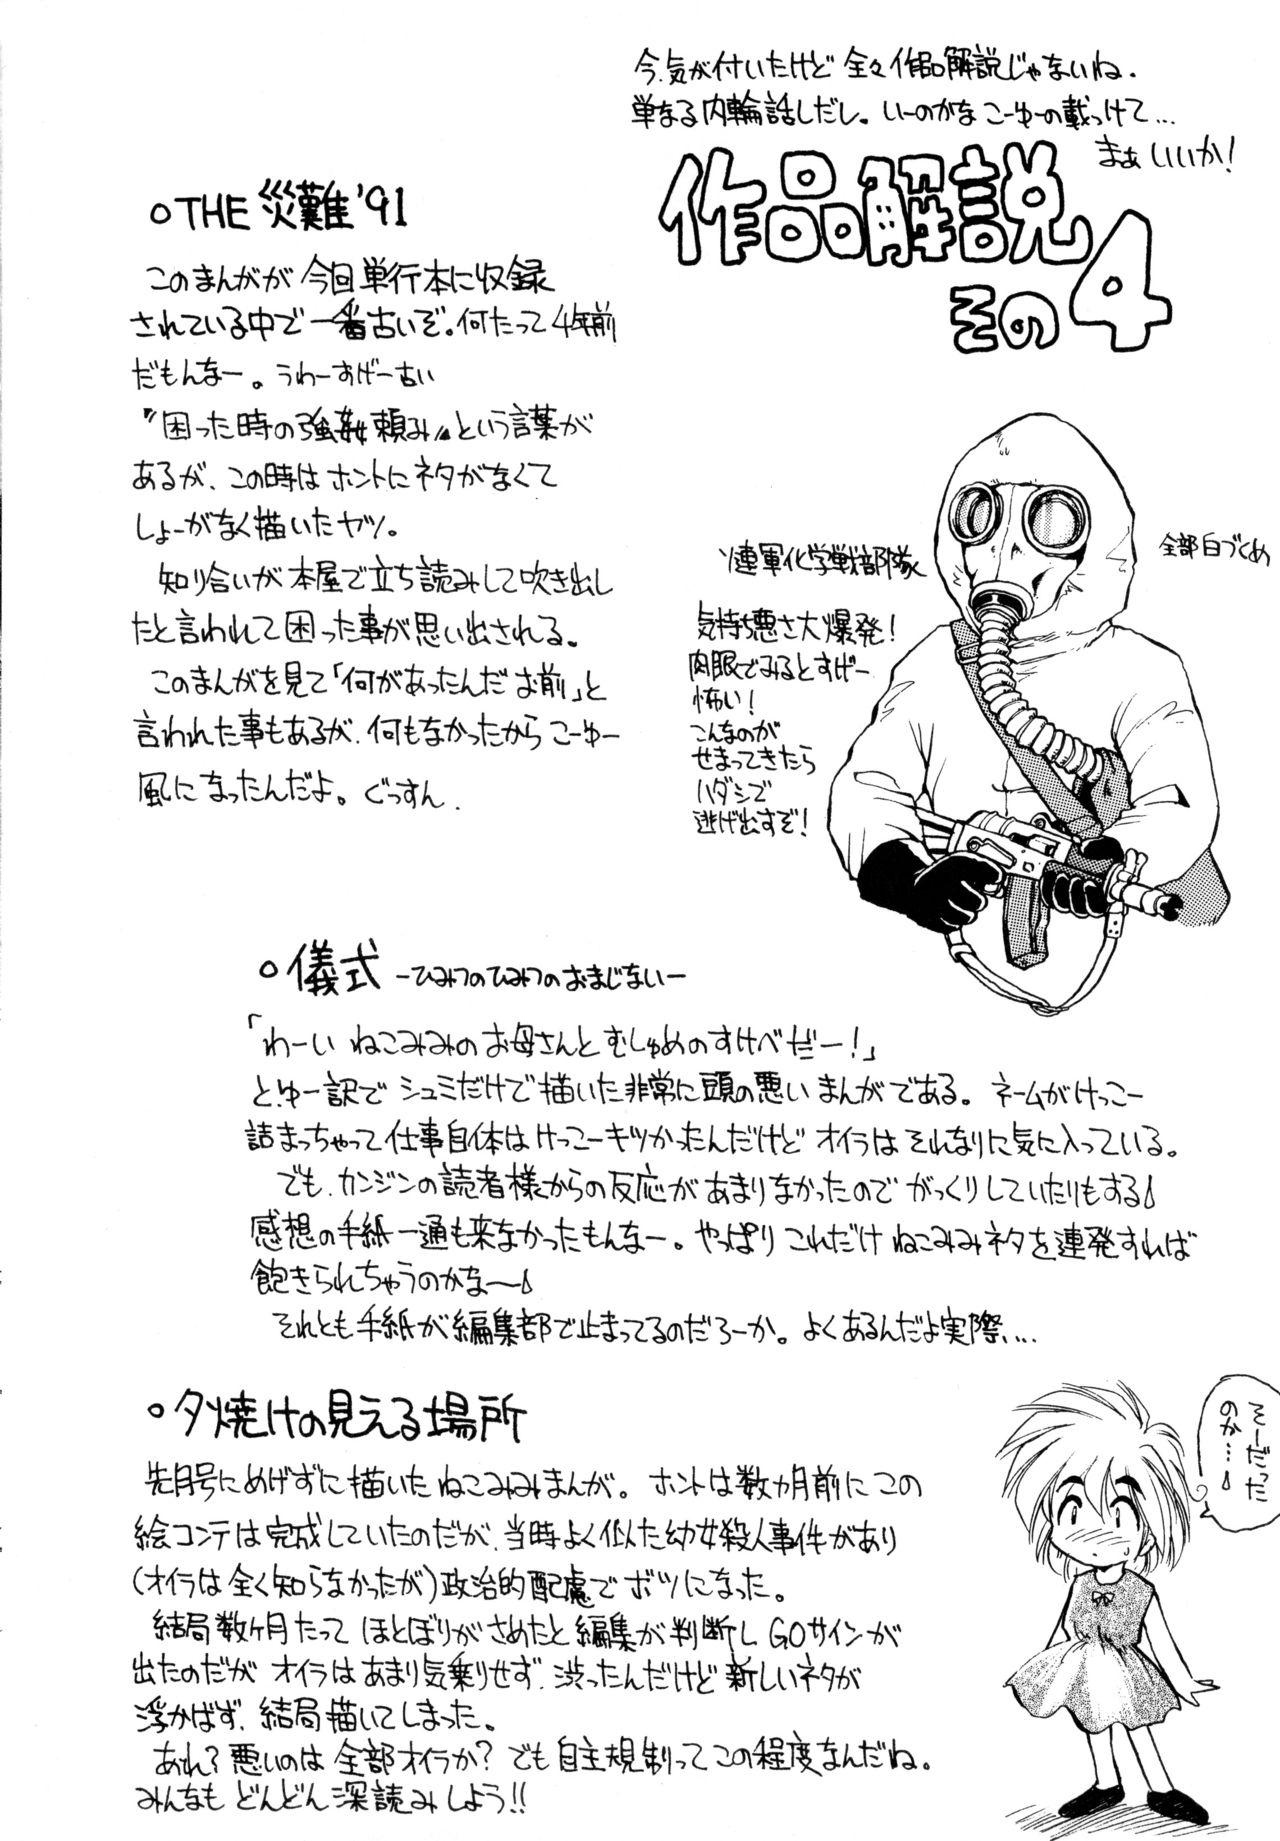 今、気が付いたけど 全々作品解説じゃないね.
単なる内輪話しだし。いーのかな こーゆーの載っけて…
まぁ いいか!
作品解説
その4
○THE 災難'91
このまんがが 今回単行本に収録
されている中で 一番古いぞ。何たって 4年前
だもんなー。うわーすげー古い
〝困った時の強姦頼み〟という言葉が
あるが、この時は ホントにネタがなくて
しょーがなく描いたヤツ。
知り合いが 本屋で立ち読みして吹き出し
たと言われて困った事が思い出される。
このまんがを見て「何があったんだ お前」と
言われた事もあるが、何もなかったから こーゆー
風になったんだよ。ぐっすん.
ソ連軍化学戦部隊
全部白づくめ
気持ち悪さ大爆発!
肉眼でみるとすげー
怖い!
こんなのが
せまってきたら
ハダシで
逃げ出すぞ!
○儀式 ーひみつのひみつのおまじないー
「わーい ねこみみのお母さんと むしゅめのすけべだー!」
と、ゆー訳で シュミだけで描いた非常に頭の悪い まんがである。 ネームがけっこー
詰まっちゃって仕事自体はけっこーキツかったんだけど オイラはそれなりに気に入っている。
でも、カンジンの読者様からの反応が あまりなかったので がっくりしていたりもする
感想の手紙一通も来なかったもんなー。やっぱり これだけ ねこみみネタを連発すれば
飽きられちゃうのかな〜
それとも手紙が編集部で止まってるのだろーか。よくあるんだよ実際….
○夕焼けの見える場所
先月号にめげずに描いたねこみみまんが。 ホントは数ヵ月前にこの
絵コンテは完成していたのだが、当時よく似た幼女殺人事件があり
(オイラは全く知らなかったが)政治的配慮でボツになった。
結局数ヶ月たって ほとぼりがさめたと編集が判断しGOサインが
出たのだが オイラはあまり気乗りせず、渋ったんだけど新しいネタが
浮かばず、結局描いてしまった。
あれ?悪いのは全部オイラか? でも 自主規制ってこの程度なんだね。
みんなも どんどん深読みしよう!!
そーだった
のか…